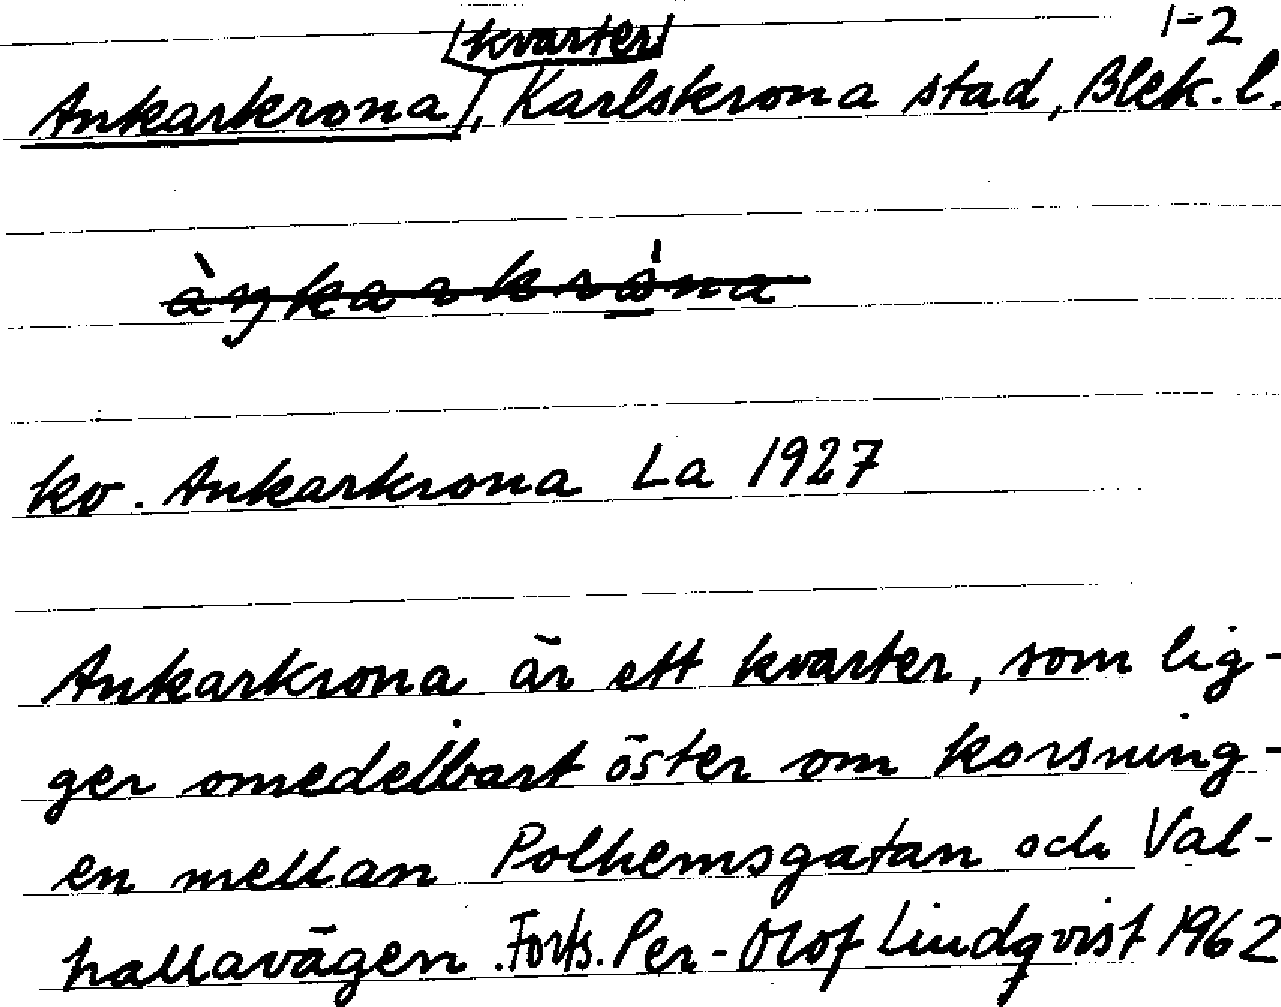 1-2
kvarter
Ankarkrona, Karlskrona stad, Blek. l.
àŋkarkróna
kv. Ankarkrona La 1927
Ankarkrona är ett kvarter, som lig-
ger omedelbart öster om korsning-
en mellan Polhemsgatan och Val-
hallavägen. Forts. Per-Olof Lindqvist 1962